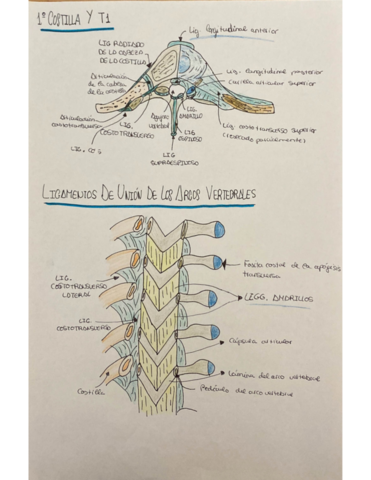 1ª COSTILLA Y T1
Lig. longitudinal anterior
LIG RADIADO
DE LA CABEZA
DE LA COSTILLA
Articulación
de la cabeza
de la costilla
Lig. longitudinal posterior
Carilla articular superior
LIG.
AMARILLO
Agujero
vertebral
Articulación
costotransversa
LIG.
COSTOTRANSVERSO
Lig. costotransverso superior
LIG.
ESPINOSO
LIG
SUPRAESPINOSO
LIGAMENTOS DE UNIÓN DE LOS ARCOS VERTEBRALES
Fascia costal de la apófisis
transversa
LIG.
COSTOTRANSVERSO
LATERAL
LEGG. AMARILLOS
LIG.
COSTOTRANSVERSO
Cápsula articular
Lámina del arco vertebral
Costilla
Pedículo del arco vertebral